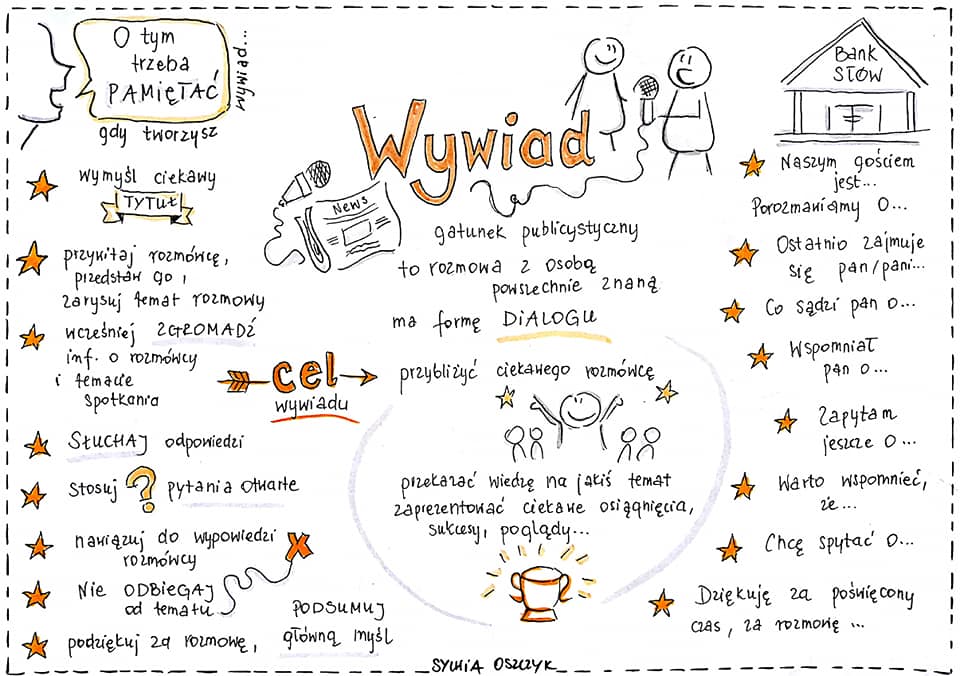 O tym
trzeba
PAMIĘTAĆ
gdy tworzysz
wywiad...
wymyśl ciekawy
TYTUŁ
przywitaj rozmówcę,
przedstaw go i
zarysuj temat rozmowy
wcześniej ZGROMADŹ
inf. o rozmówcy
i temacie
spotkania
SŁUCHAJ odpowiedzi
Stosuj ? pytania otwarte
nawiązuj do wypowiedzi
rozmówcy
Nie ODBIEGAJ
od tematu
podziękuj za rozmowę,
PODSUMUJ
główną myśl
Wywiad
NEWS
gatunek publicystyczny
to rozmowa z osobą
powszechnie znaną
ma formę DIALOGU
cel
wywiadu
przybliżyć ciekawego rozmówcę
przekazać wiedzę na jakiś temat
zaprezentować ciekawe osiągnięcia,
sukcesy, poglądy...
Bank
SŁÓW
Naszym gościem
jest...
Porozmawiamy o...
Ostatnio zajmuje
się pan/pani...
Co sądzi pan o...
Wspomniał
pan o...
Zapytam
jeszcze o...
Warto wspomnieć,
że...
Chcę spytać o...
Dziękuję za poświęcony
czas, za rozmowę ...
SYLWIA OSZCZYK